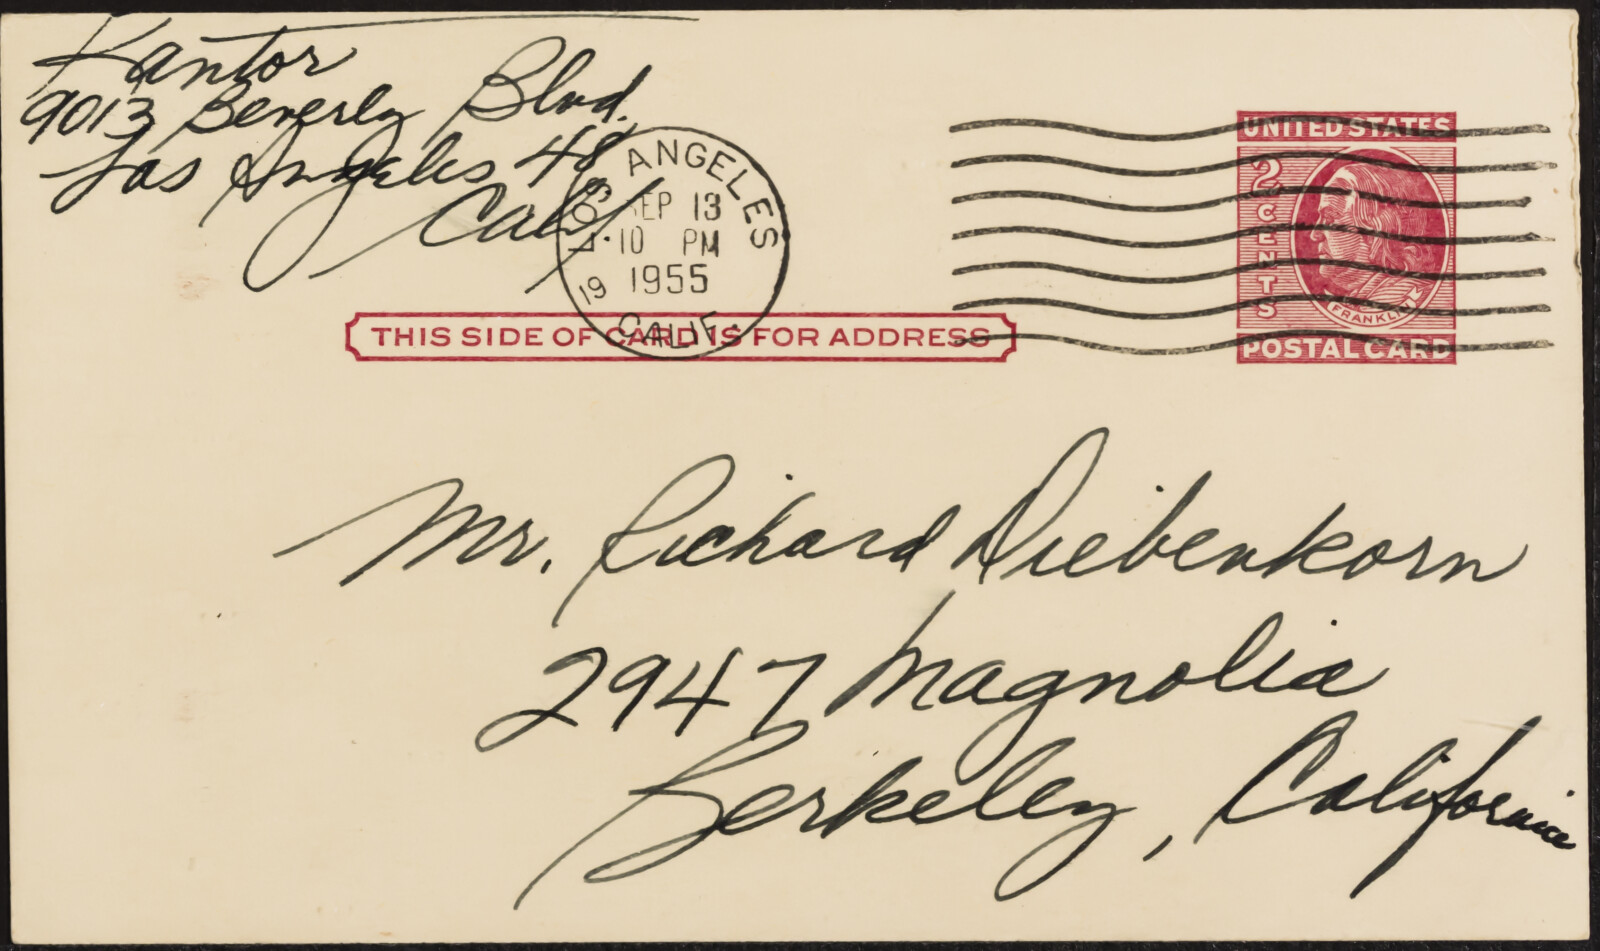 Kantor
9013 Beverly Blvd.
Los Angeles 48
Calif
LOS ANGELES
SEP 13
10 PM
19 1955
CALIF.
UNITED STATES
2 CENTS
FRANKLIN
POSTAL CARD
THIS SIDE OF CARD IS FOR ADDRESS
Mr. Richard Diebenkorn
2947 Magnolia
Berkeley, California